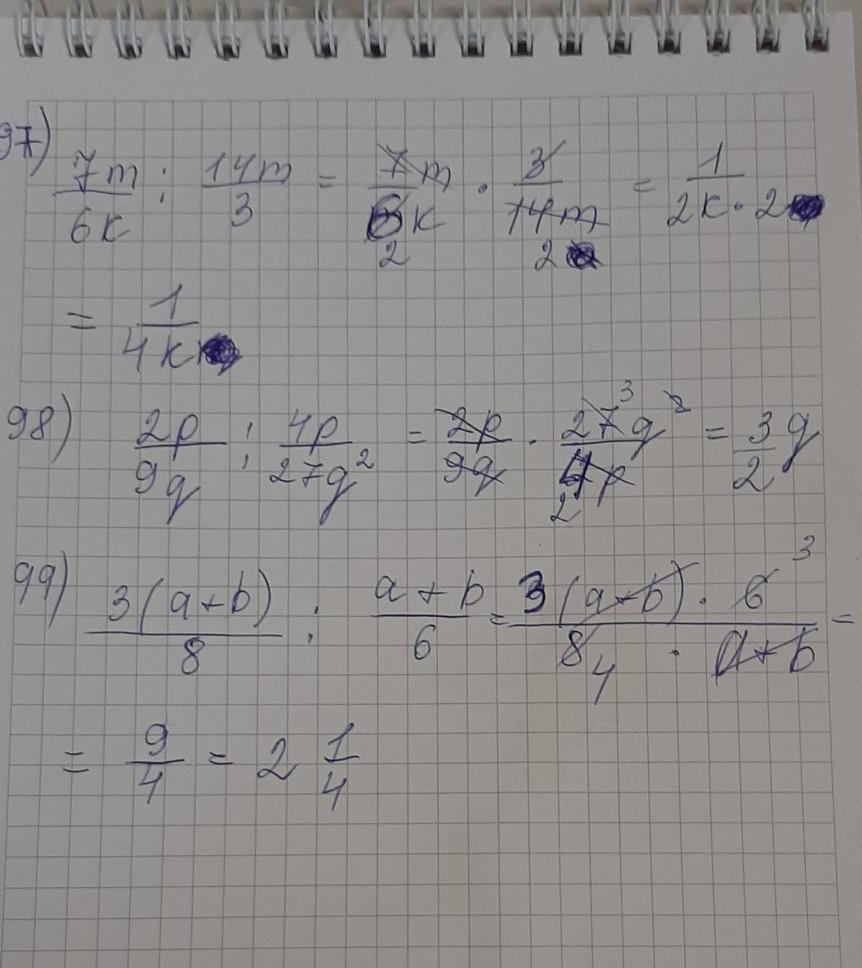 97) 7m/6k : 14m/3 = 7m/6k 2 · 3/14m 2 = 1/2k·2
= 1/4k
98) 2p/9q : 4p/27q² = 2p/9q · 27³q²/4p 2 = 3/2 q
99) 3(a+b)/8 : a+b/6 = 3(a+b)·6 3/8 4 · a+b =
= 9/4 = 2 1/4